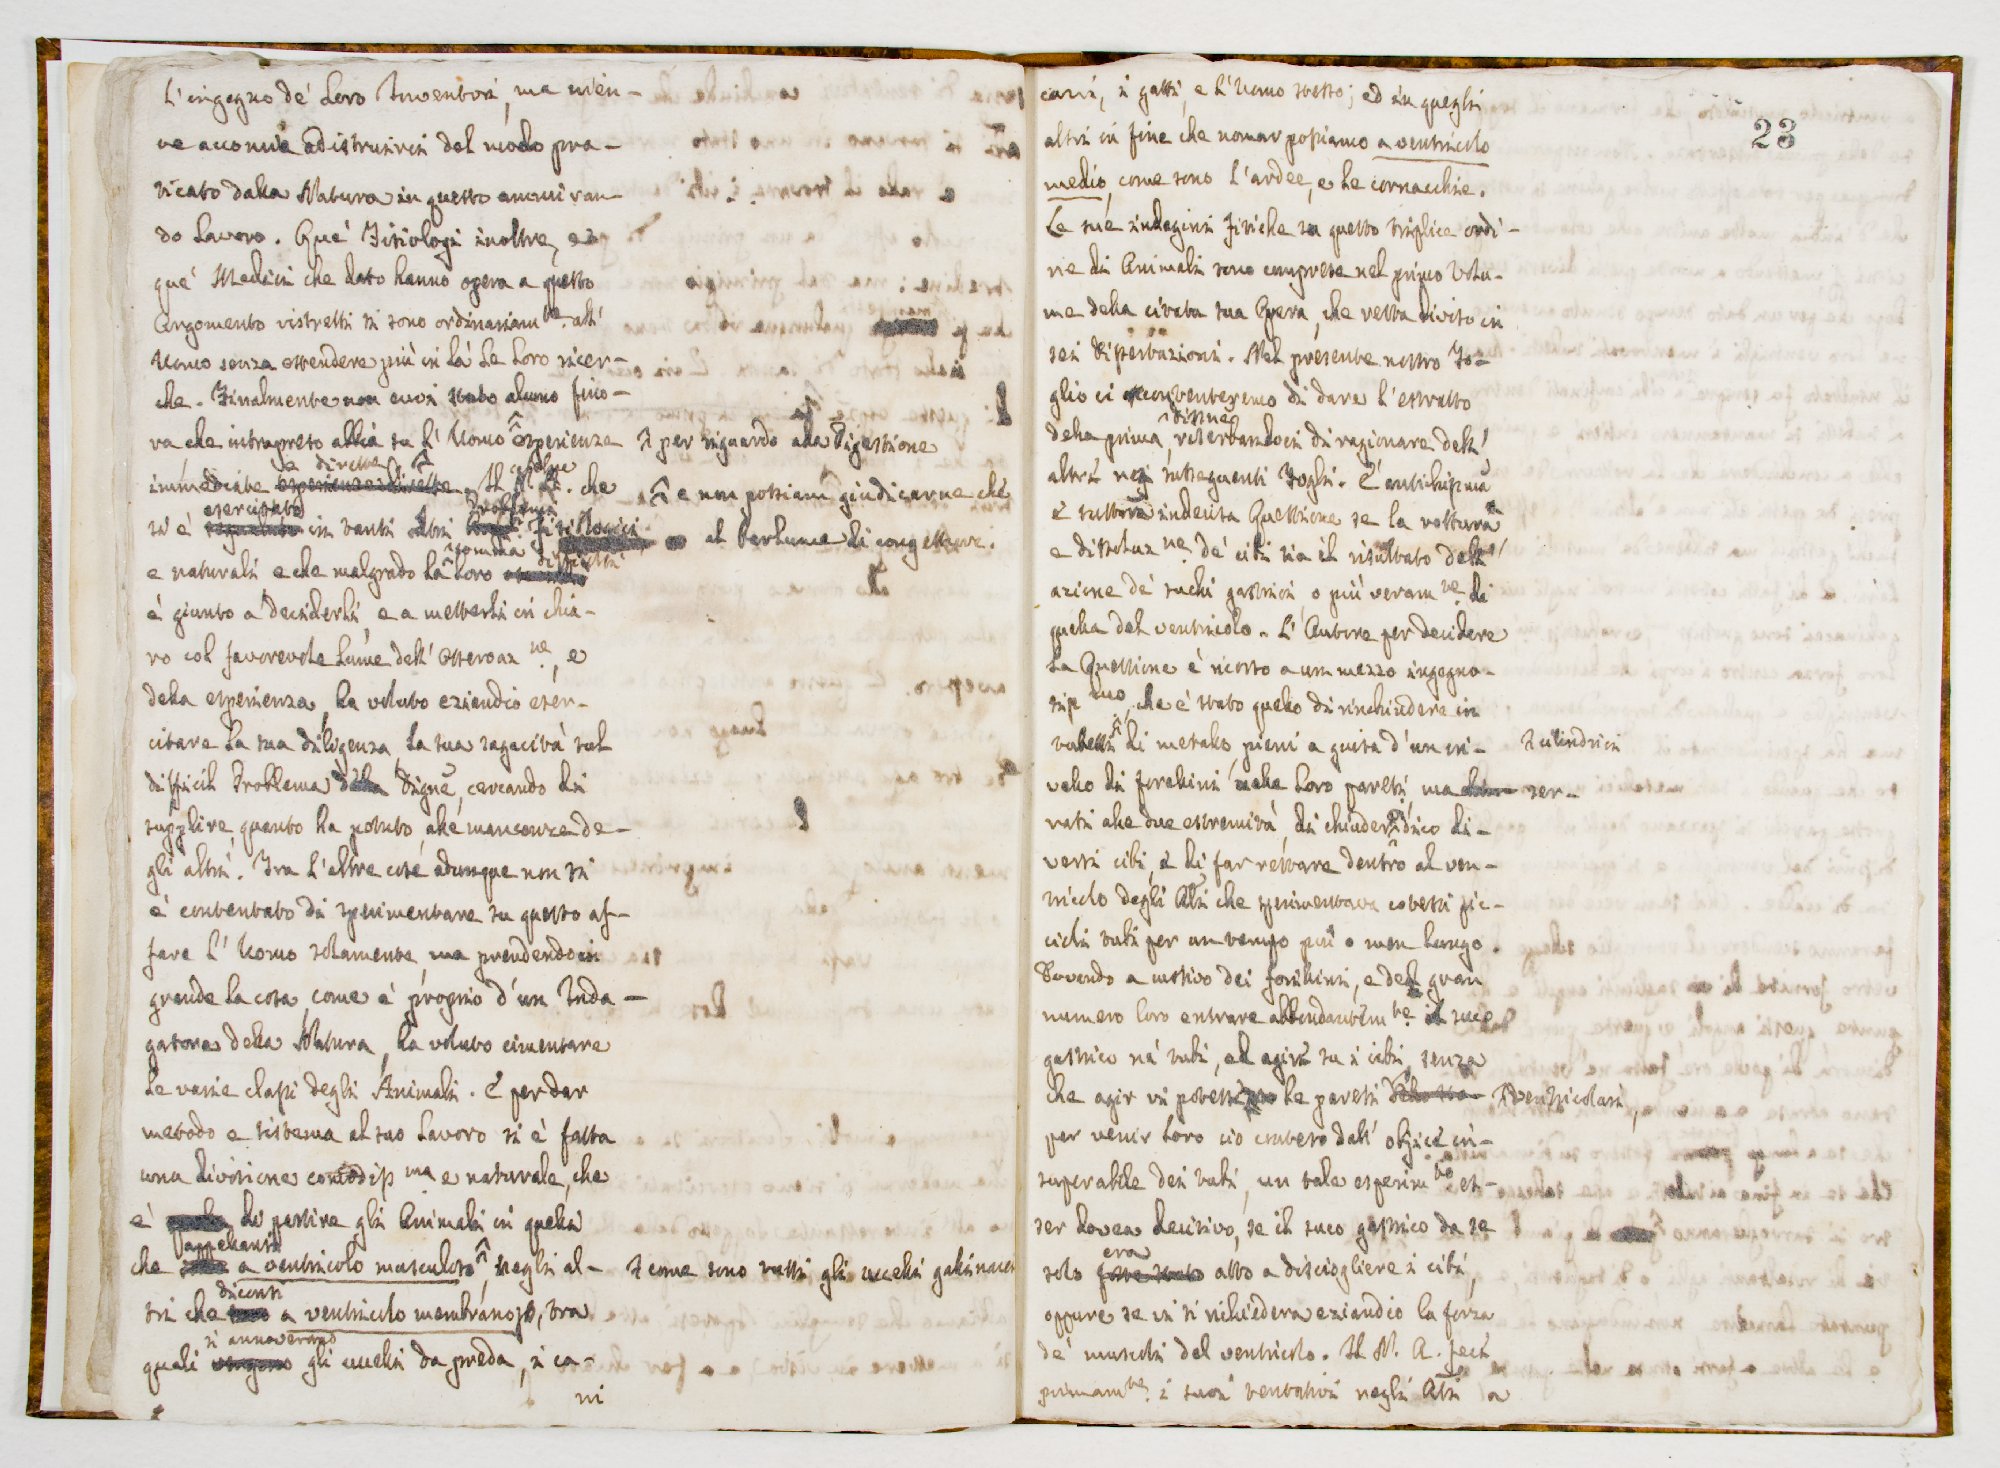 L'ingegno de' Loro Inventori, ma nien-
te accomie ad istruirci del modo pra-
ticato dalla Natura in questo ammiran-
do Lavoro. Que' Fisiologi inoltre, e
que' Medici che dato hanno opera a questo
Argomento ristretti si sono ordinariam.te all'
Uomo senza estendere più in là le Loro ricer-
che. Finalmente non evvi stato alcuno fino-
ra che intrapreso abbia su l'Uomo esperienze
immediate e dirette. Il celebre N. A. che
si è esercitato in tanti altri Problemi Fisiologici
e naturali e che malgrado la somma Loro difficoltà
è giunto a deciderli, e a metterli in chia-
ro col favorevole lume dell'Osservaz.ne, e
della esperienza, ha voluto eziandio eser-
citare la sua diligenza, la sua sagacità sul
difficil Problema della Digne, cercando di
supplire quanto ha potuto alle mancanze de-
gli altri. Fra l'altre cose adunque non si
è contentato di sperimentare su questo af-
fare l'Uomo solamente, ma prendendo in
grande la cosa, come è proprio d'un Inda-
gatore della Natura, ha voluto cimentare
le varie classi degli Animali. E per dar
metodo e sistema al suo Lavoro si è fatta
una divisione comodiss.ma e naturale, che
è di partire gli Animali in quelli
che appellansi a ventricolo musculoso, negli al-
tri che diconsi a ventricolo membranoso, tra
quali si annoverano gli uccelli da preda, i ca-
ni
per riguardo alla Digestione
e non possiam giudicarne che
al barlume di congetture.
come sono tutti gli uccelli gallinacei
23
cani, i gatti, e l'Uomo stesso; ed in quegli
altri in fine che nomar possiamo a ventricolo
medio, come sono l'ardee, e le cornacchie.
Le sue indagini Fisiche su questo triplice ordi-
ne di Animali sono comprese nel primo Volu-
me della citata sua Opera, che resta diviso in
sei Dissertazioni. Nel presente nostro Fo-
glio ci contenteremo di dare l'estratto
della prima, riserbandoci di ragionare dell'
altre nei susseguenti Fogli. È antichissima
e tuttora indecisa Questione se la rottura
e dissoluz.ne de' cibi sia il risultato dell'
azione de' suchi gastrici, o più veram.te di
quella del ventricolo. L'Autore per decidere
la Questione è ricorso a un mezzo ingegno-
siss.mo, che è stato quello di rinchiudere in
tubetti di metallo, pieni a guisa d'un cri-
vello di forellini nelle Loro pareti, ma ser-
rati alle due estremità, di chiuder dico di-
versi cibi, e di far restare dentro al ven-
tricolo degli Ali che sperimentava cotesti pic-
cioli tubi per un tempo più o men lungo.
Dovendo a motivo dei forellini, e del gran
numero loro entrare abbondantem.te il suco
gastrico ne' tubi, ed agire su i cibi, senza
che agir vi potessero le pareti ventricolari,
per venir Loro cio conteso dall'objice in-
superabile dei tubi, un tale esperim.to es-
ser dovea decisivo, se il suco gastrico da se
solo era atto a disciogliere i cibi,
oppure se vi si richiedeva eziandio la forza
de' muscoli del ventricolo. Il N. A. fece
primam.te i suoi tentativi negli Ali a
cilindrici